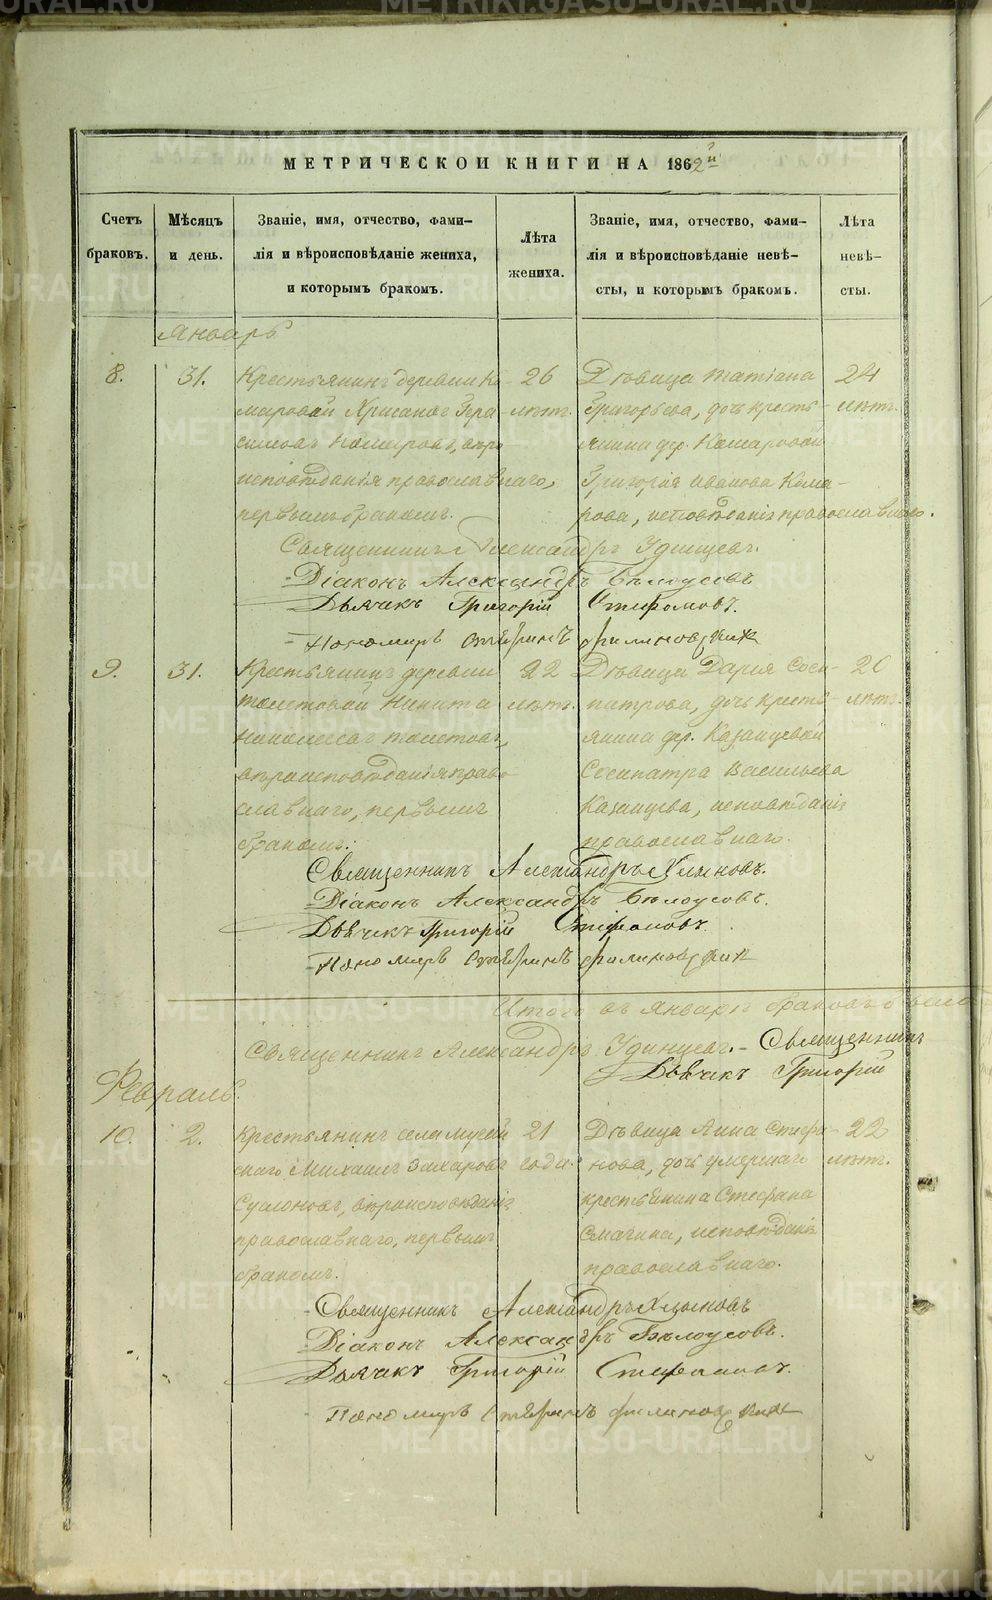 МЕТРИЧЕСКОЙ КНИГИ НА 1862й
Счетъ браковъ.
Мѣсяцъ и день.
Званіе, имя, отчество, фами-
лія и вѣроисповѣданіе жениха,
и которымъ бракомъ.
Лѣта жениха.
Званіе, имя, отчество, фами-
лія и вѣроисповѣданіе невѣ-
сты, и которымъ бракомъ.
Лѣта невѣ-
сты.
Январь
8.
31.
Крестьянинъ деревни Ко-
маровой Хрисанфъ Гера-
симовъ Комаровъ, вѣро
исповѣданія православнаго,
первымъ бракомъ.
26
лѣтъ.
Дѣвица Татіана
Григорьева, дочь кресть-
янина дер. Комаровой
Григорія Иванова Кома-
рова, исповѣданія православнаго.
24
лѣтъ.
Священникъ Александръ Удинцевъ.
Діаконъ Александръ Бѣлоусовъ
Дьячекъ Григорій Стефановъ.
Пономарь
9.
31.
Крестьянинъ деревни
Толстовой Никита
Толстовъ,
вѣроисповѣданія право
славнаго, первымъ
бракомъ.
22
лѣтъ.
Дѣвица Дарія Соси-
патрова, дочь кресть-
янина дер. Казанцевой
Сосипатра Васильева
Казанцева, исповѣданія
православнаго.
20
лѣтъ.
Священникъ Александръ
Діаконъ Александръ Бѣлоусовъ.
Дьячекъ Григорій Стефановъ.
Пономарь
Итого въ Январѣ браковъ
Священникъ Александръ Удинцевъ. Священникъ
Дьячекъ Григорій
Февраль.
10.
2.
Крестьянинъ села
Михаилъ Захаровъ
Суслоновъ, вѣроисповѣданія
православнаго, первымъ
бракомъ.
21
года.
Дѣвица Анна Стефа-
нова, дочь умершаго
крестьянина Стефана
Смагина, исповѣданія
православнаго.
22
лѣтъ.
Священникъ Александръ
Діаконъ Александръ Бѣлоусовъ.
Дьячекъ Григорій Стефановъ.
Пономарь
METRIKI.GASO-URAL.RU